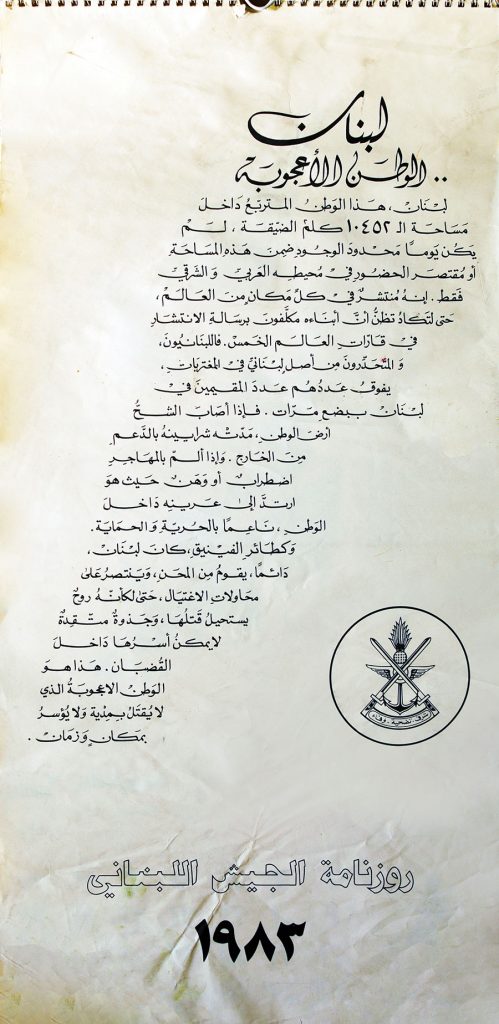 لبنان
.. الوطن الأعجوبة
لبنان، هذا الوطن المتربّع داخل
مساحة الـ ١٠٤٥٢ كلم٢ الضيّقة، لم
يكن يوماً محدود الوجود ضمن هذه المساحة
أو مقتصر الحضور في محيطه العربي والشرقي
فقط. إنه منتشرٌ في كلّ مكان من العالم،
حتى لتكاد تظنّ أنّ أبناءه مكلّفون برسالة الانتشار
في قارات العالم الخمس. فاللبنانيون،
والمتحدّرون من أصل لبنانيّ في المغتربات،
يفوق عددُهم عدد المقيمين في
لبنان ببضع مرّات. فإذا أصاب الشحّ
ارض الوطن، مدّته شرايينه بالدّعم
من الخارج. وإذا ألمّ بالمهاجر
اضطرابٌ أو وهنٌ حيث هو
ارتدّ إلى عرينه داخل
الوطن، ناعماً بالحريّة والحماية.
وكطائر الفينيق، كان لبنان،
دائماً، يقوم من المحن، وينتصر على
محاولات الاغتيال، حتى لكأنّه روحٌ
يستحيل قتلها، وجذوةٌ متّقدةٌ
لا يمكن أسرُها داخل
القضبان. هذا هو
الوطن الاعجوبة الذي
لا يُقتل بمدية ولا يُؤسر
بمكانٍ وزمان.
شرف تضحية وفاء
روزنامة الجيش اللبناني
١٩٨٣